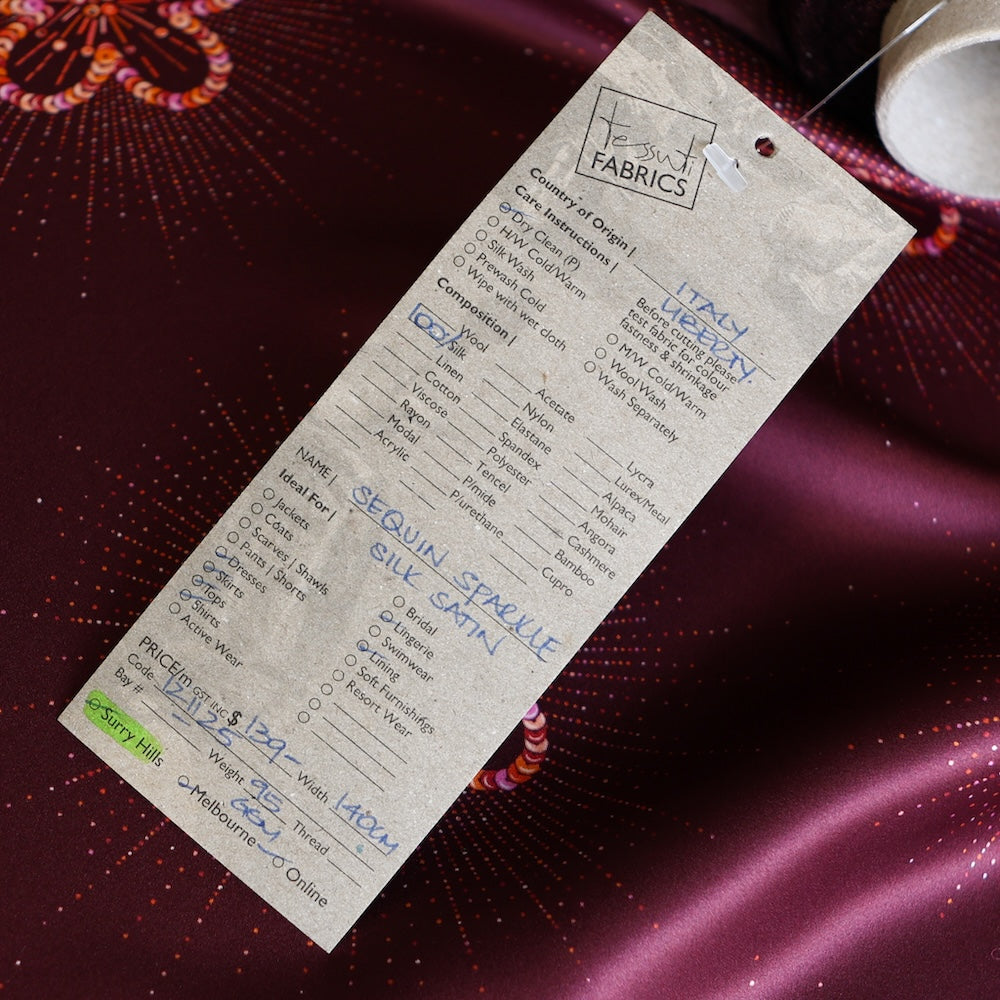 tessuti
FABRICS
Country of Origin | ITALY
LIBERTY.
Care Instructions |
Dry Clean (P)
H/W Cold/Warm
Silk Wash
Prewash Cold
Wipe with wet cloth
Before cutting please
test fabric for colour
fastness & shrinkage
M/W Cold/Warm
Wool Wash
Wash Separately
Composition |
Wool
100% Silk
Linen
Cotton
Viscose
Rayon
Modal
Acrylic
Acetate
Nylon
Elastane
Spandex
Polyester
Tencel
P/mide
P/urethane
Lycra
Lurex/Metal
Alpaca
Mohair
Angora
Cashmere
Bamboo
Cupro
NAME | SEQUIN SPARKLE
SILK SATIN
Ideal For |
Jackets
Coats
Scarves | Shawls
Pants | Shorts
Dresses
Skirts
Tops
Shirts
Active Wear
Bridal
Lingerie
Swimwear
Lining
Soft Furnishings
Resort Wear
PRICE/m GST INC $ 139- Width 140CM
Code 121125 Weight 95 GSM Thread
Bay # -
Surry Hills Melbourne Online